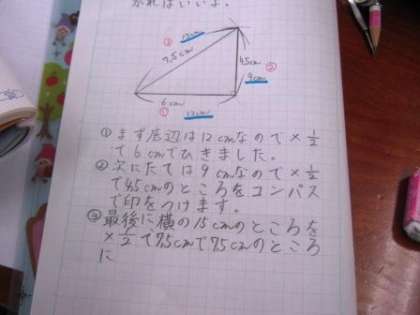 かればいいよ。
③ 15cm
7.5cm
4.5cm ②
9cm
6cm
①
12cm
①まず底辺は12cmなので×1/2
で6cmでひきました。
②次にたては9cmなので×1/2
で4.5cmのところをコンパス
で印をつけます。
③最後に横の15cmのところを
×1/2で7.5cmで7.5cmのところ
に